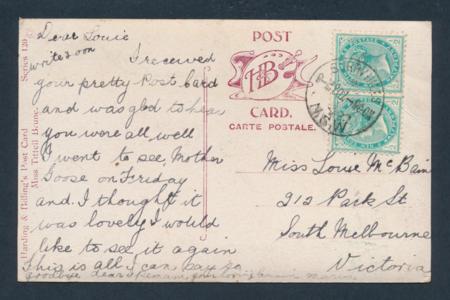 Dear Louie
write soon
I received
your pretty Post Card
and was glad to hear
you were all well
I went to see, Mother
Goose on Friday
and, I thought it
was lovely I would
like to see it again
This is all I can say so
goodbye dear I remain your loving friend
POST
HB
CARD.
CARTE POSTALE.
Miss Louie McBain
912 Park St
South Melbourne
Victoria
N.S.W
Harding & Billing's Post Card Series 120
Miss Tittell Brune.